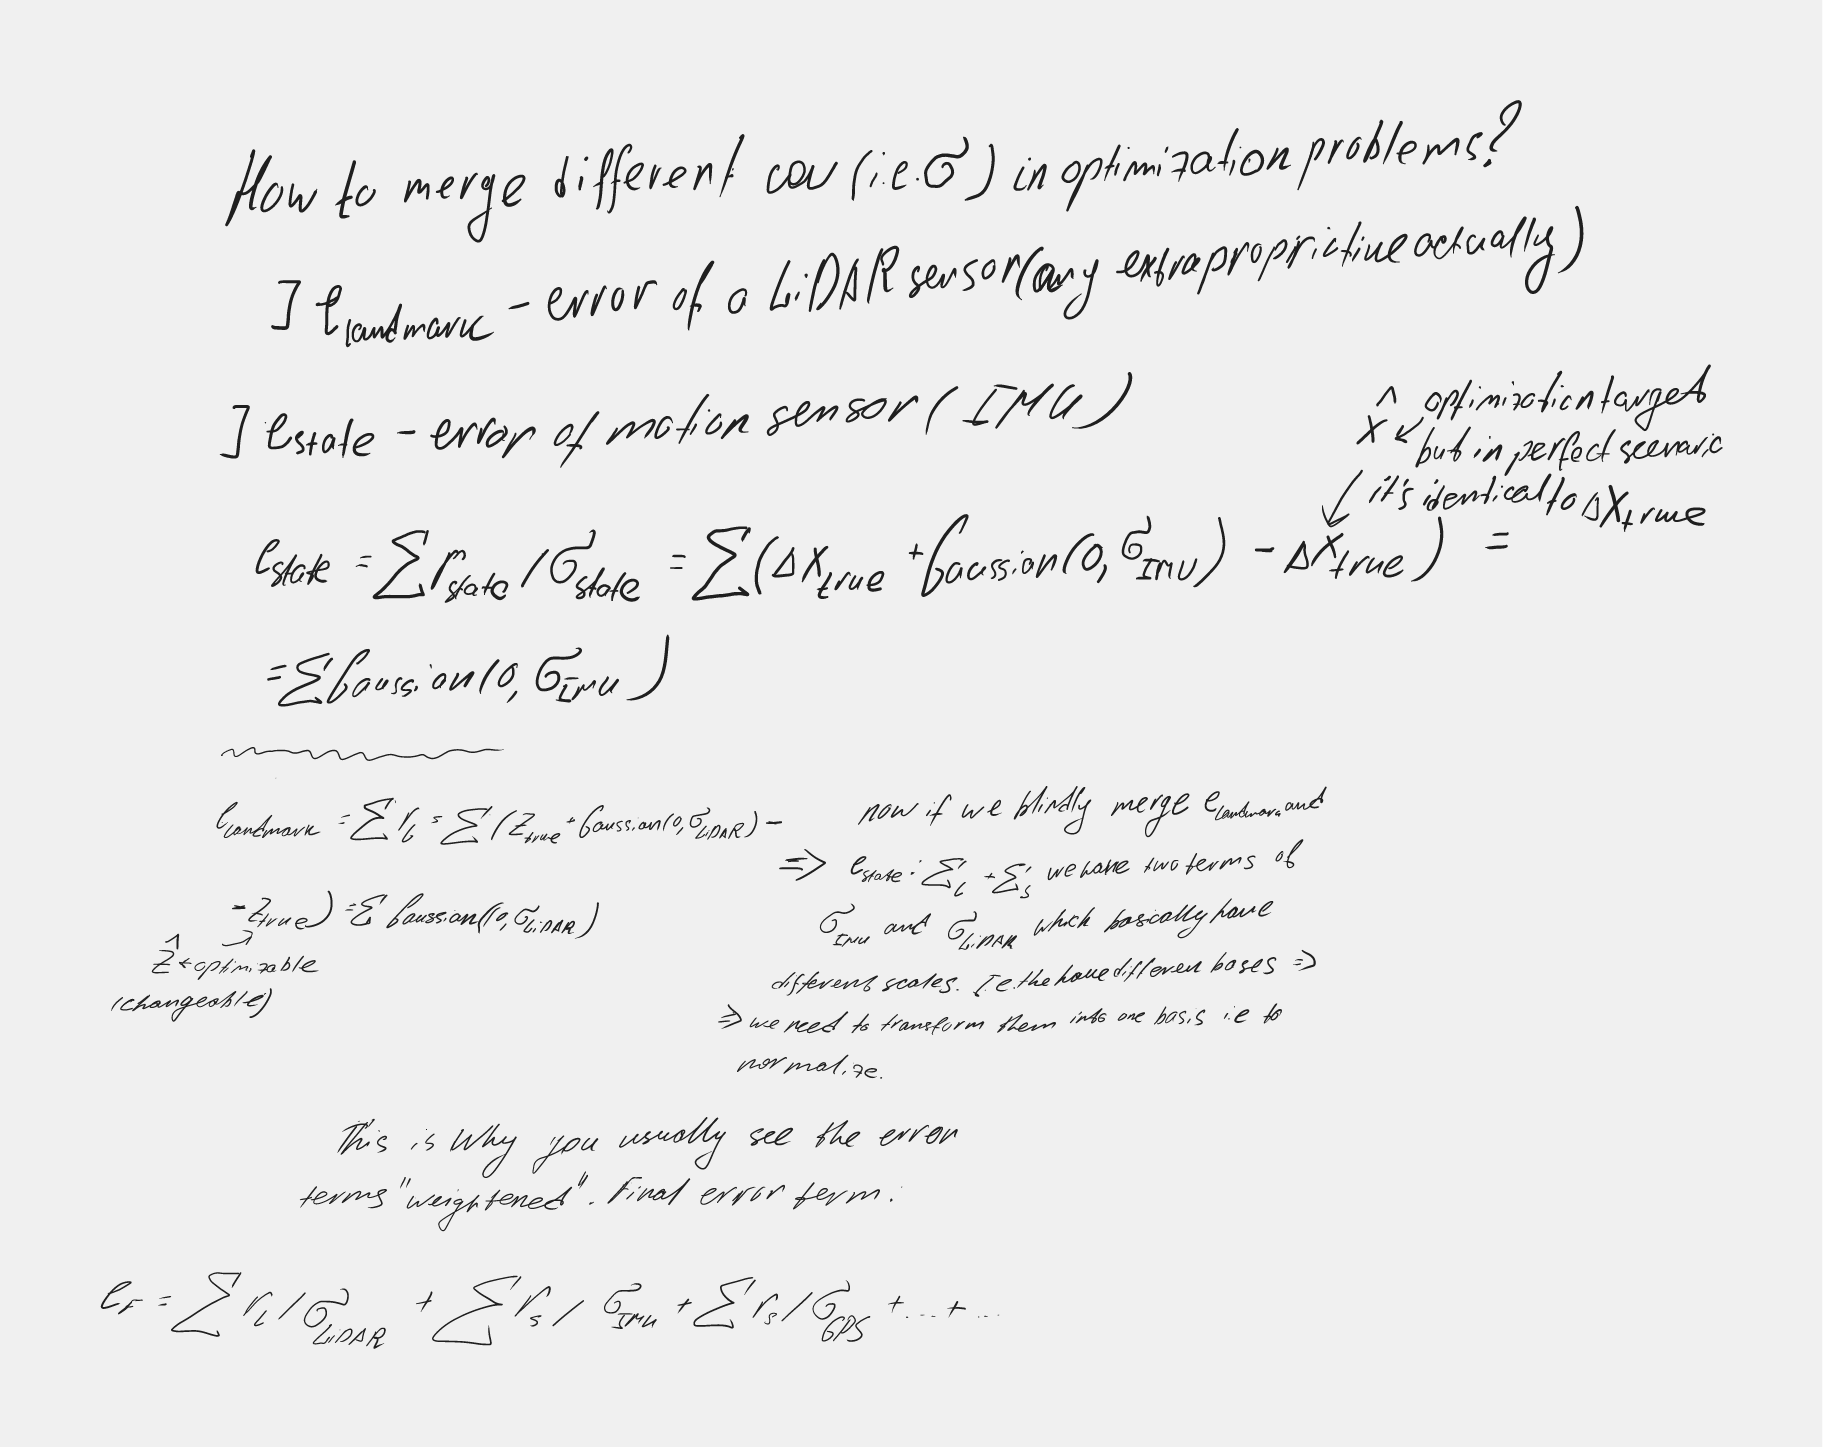 How to merge different cov (i.e. σ) in optimization problems?
] e_landmark - error of a LiDAR sensor (any extrapropirictive actually)
] e_state - error of motion sensor (IMU)
^ optimization target
x ↙ but in perfect scenario
↙ it's identical to Δx_true
e_state = ∑ r_state / σ_state = ∑ (Δx_true + Gaussian(0, σ_IMU) - Δx_true) =
= ∑ Gaussian(0, σ_IMU)
e_landmark = ∑ r_l = ∑ (z_true + Gaussian(0, σ_LiDAR) -
- z_true) = ∑ Gaussian(0, σ_LiDAR)
ẑ ← optimizable
(changeable)
now if we blindly merge e_landmark and
=> e_state: ∑_l + ∑_s we have two terms of
σ_IMU and σ_LiDAR which basically have
different scales. I.e. the have different bases =>
=> we need to transform them into one basis i.e to
normalize.
This is Why you usually see the error
terms "weightened". Final error term:
e_F = ∑ r_l / σ_LiDAR + ∑ r_s / σ_IMU + ∑ r_s / σ_GPS + ... + ...